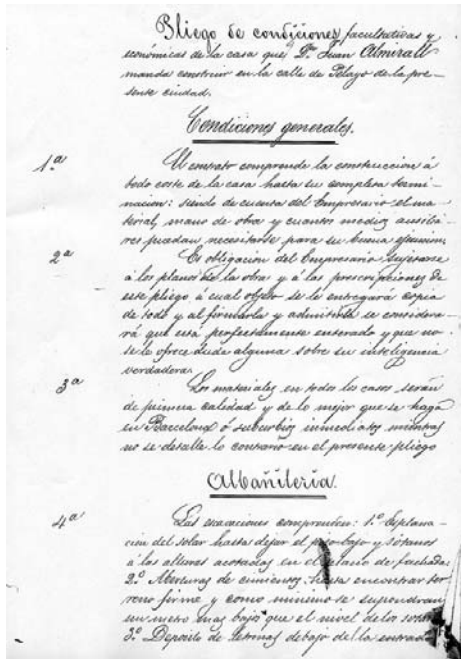 Pliego de condiciones facultativas y
económicas de la casa que Dn. Juan Almirall
manda construir en la calle de Pelayo de la pre-
sente ciudad.
Condiciones generales.
1.ª
El contrato comprende la construccion á
todo coste de la casa hasta su completa termi-
nacion: siendo de cuenta del Empresario el ma-
terial, mano de obra y cuantos medios auxilia-
res puedan necesitarse para su buena ejecucion.
2ª
Es obligacion del Empresario sujetarse
á los planos de la obra y á las prescripciones de
este pliego á cual objeto se le entregará copia
de todo y al firmarla y admitirla se considera-
rá que está perfectamente enterado y que no
se le ofrece duda alguna sobre su inteligencia
verdadera.
3ª
Los materiales en todos los casos serán
de primera calidad y de lo mejor que se haga
en Barcelona ó suburbios inmediatos mientras
no se detalle lo contrario en el presente pliego
Albañilería.
4ª
Las escavaciones comprenden: 1.º Esplana-
cion del solar hasta dejar el piso bajo y sótanos
á las alturas acotadas en el plano de fachada:
2.º Aberturas de cimientos: hasta encontrar ter-
reno firme y como minimo se supondran
un metro mas bajo que el nivel de los
3.º Deposito de letrinas debajo de la entrada